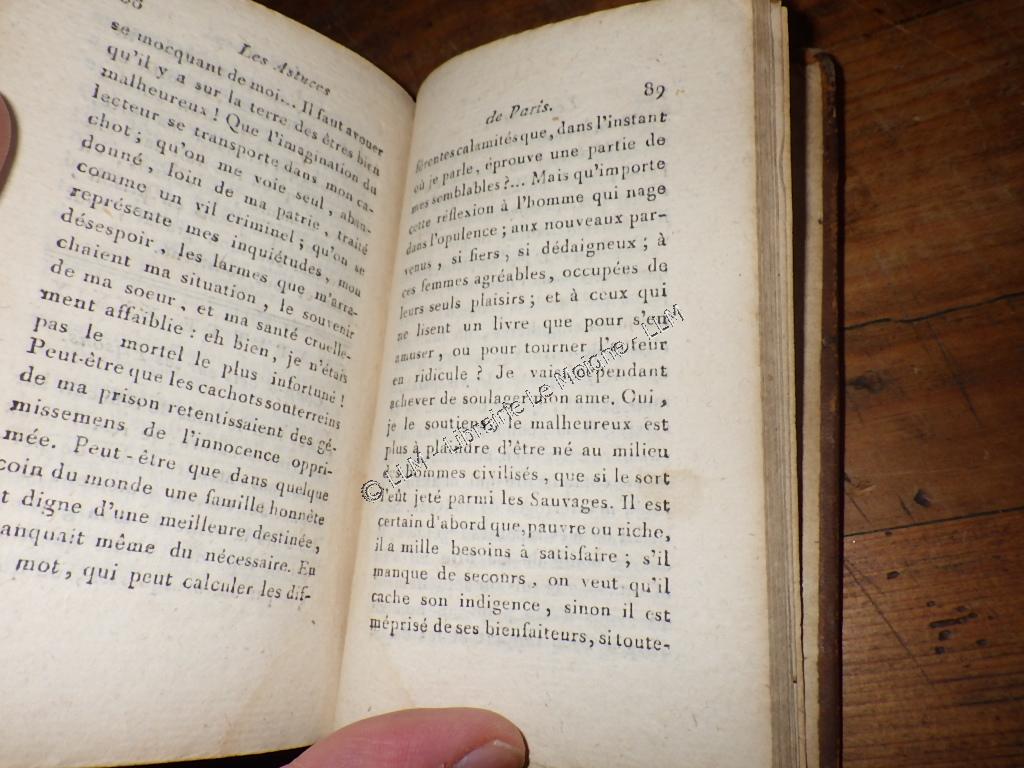 Les Astuces
se mocquant de moi... Il faut avouer
qu'il y a sur la terre des êtres bien
malheureux ! Que l'imagination du
lecteur se transporte dans mon ca-
chot ; qu'on me voie seul, aban-
donné, loin de ma patrie, traité
comme un vil criminel ; qu'on se
représente mes inquiétudes, mon
désespoir, les larmes que m'arra-
chaient ma situation, le souvenir
de ma soeur, et ma santé cruelle-
ment affaiblie : eh bien, je n'étais
pas le mortel le plus infortuné !
Peut-être que les cachots souterreins
de ma prison retentissaient des gé-
missemens de l'innocence oppri-
mée. Peut-être que dans quelque
coin du monde une famille honnête
digne d'une meilleure destinée,
manquait même du nécessaire. En
mot, qui peut calculer les dif-
de Paris. 89
férentes calamités que, dans l'instant
où je parle, éprouve une partie de
mes semblables ?... Mais qu'importe
cette réflexion à l'homme qui nage
dans l'opulence ; aux nouveaux par-
venus, si fiers, si dédaigneux ; à
ces femmes agréables, occupées de
leurs seuls plaisirs ; et à ceux qui
ne lisent un livre que pour s'en
amuser, ou pour tourner l'auteur
en ridicule ? Je vais cependant
achever de soulager mon ame. Oui,
je le soutiens, le malheureux est
plus à plaindre d'être né au milieu
d'hommes civilisés, que si le sort
l'eût jeté parmi les Sauvages. Il est
certain d'abord que, pauvre ou riche,
il a mille besoins à satisfaire ; s'il
manque de secours, on veut qu'il
cache son indigence, sinon il est
méprisé de ses bienfaiteurs, si toute-
© LLM - Librairie Le Moigne LLM